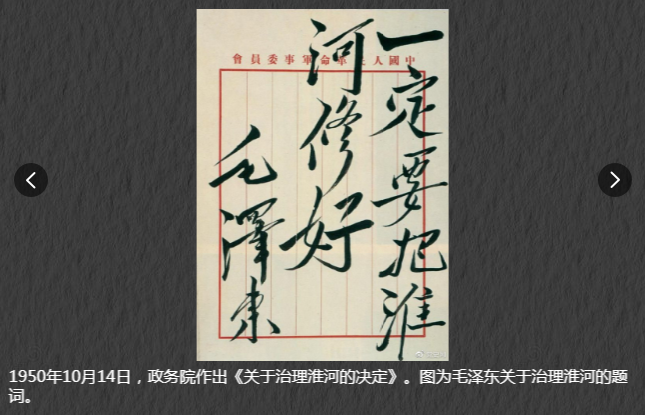 會員委事軍命革民人國中
一定要把淮
河修好
毛澤东
1950年10月14日，政务院作出《关于治理淮河的决定》。图为毛泽东关于治理淮河的题
词。